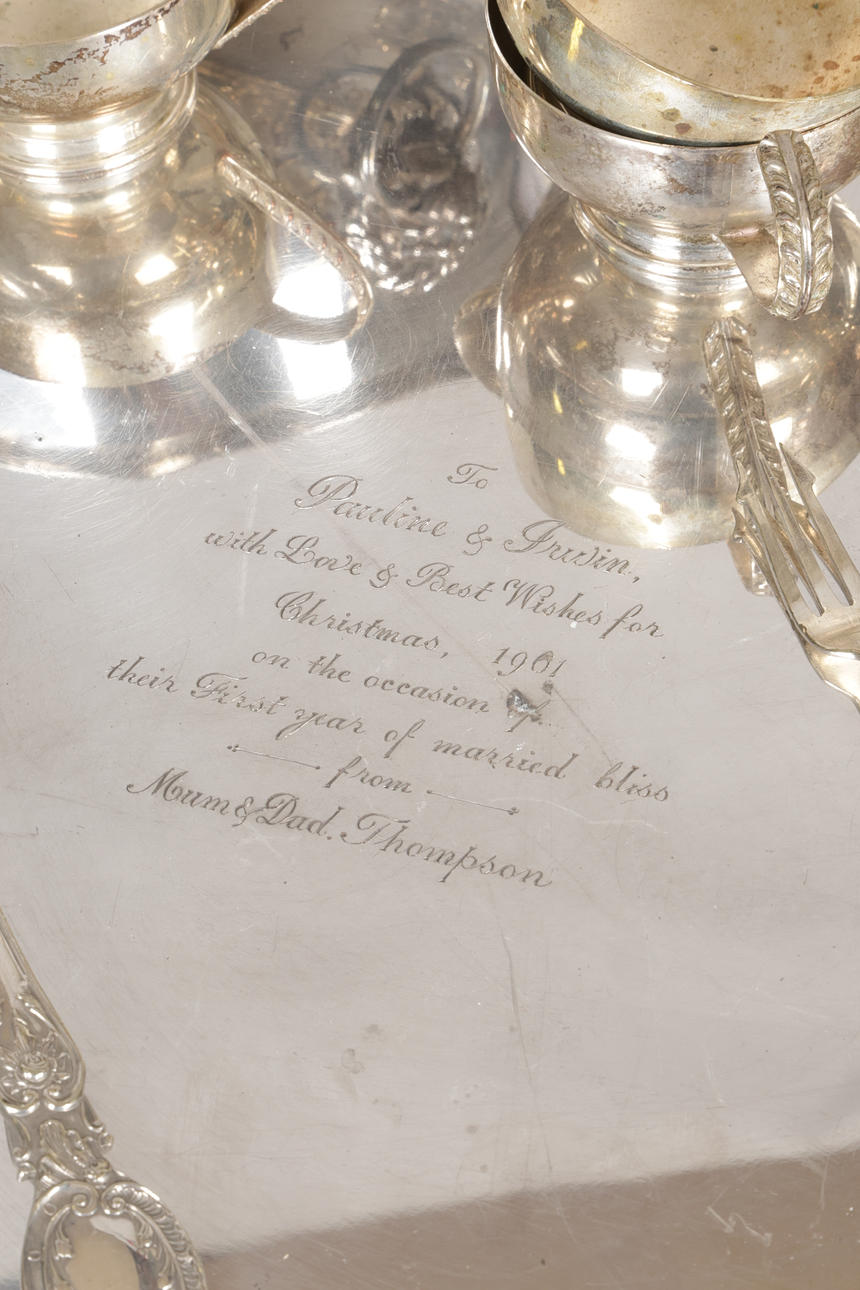 To
Pauline & Irwin,
with Love & Best Wishes for
Christmas, 1961
on the occasion of
their First year of married bliss
from
Mum & Dad. Thompson